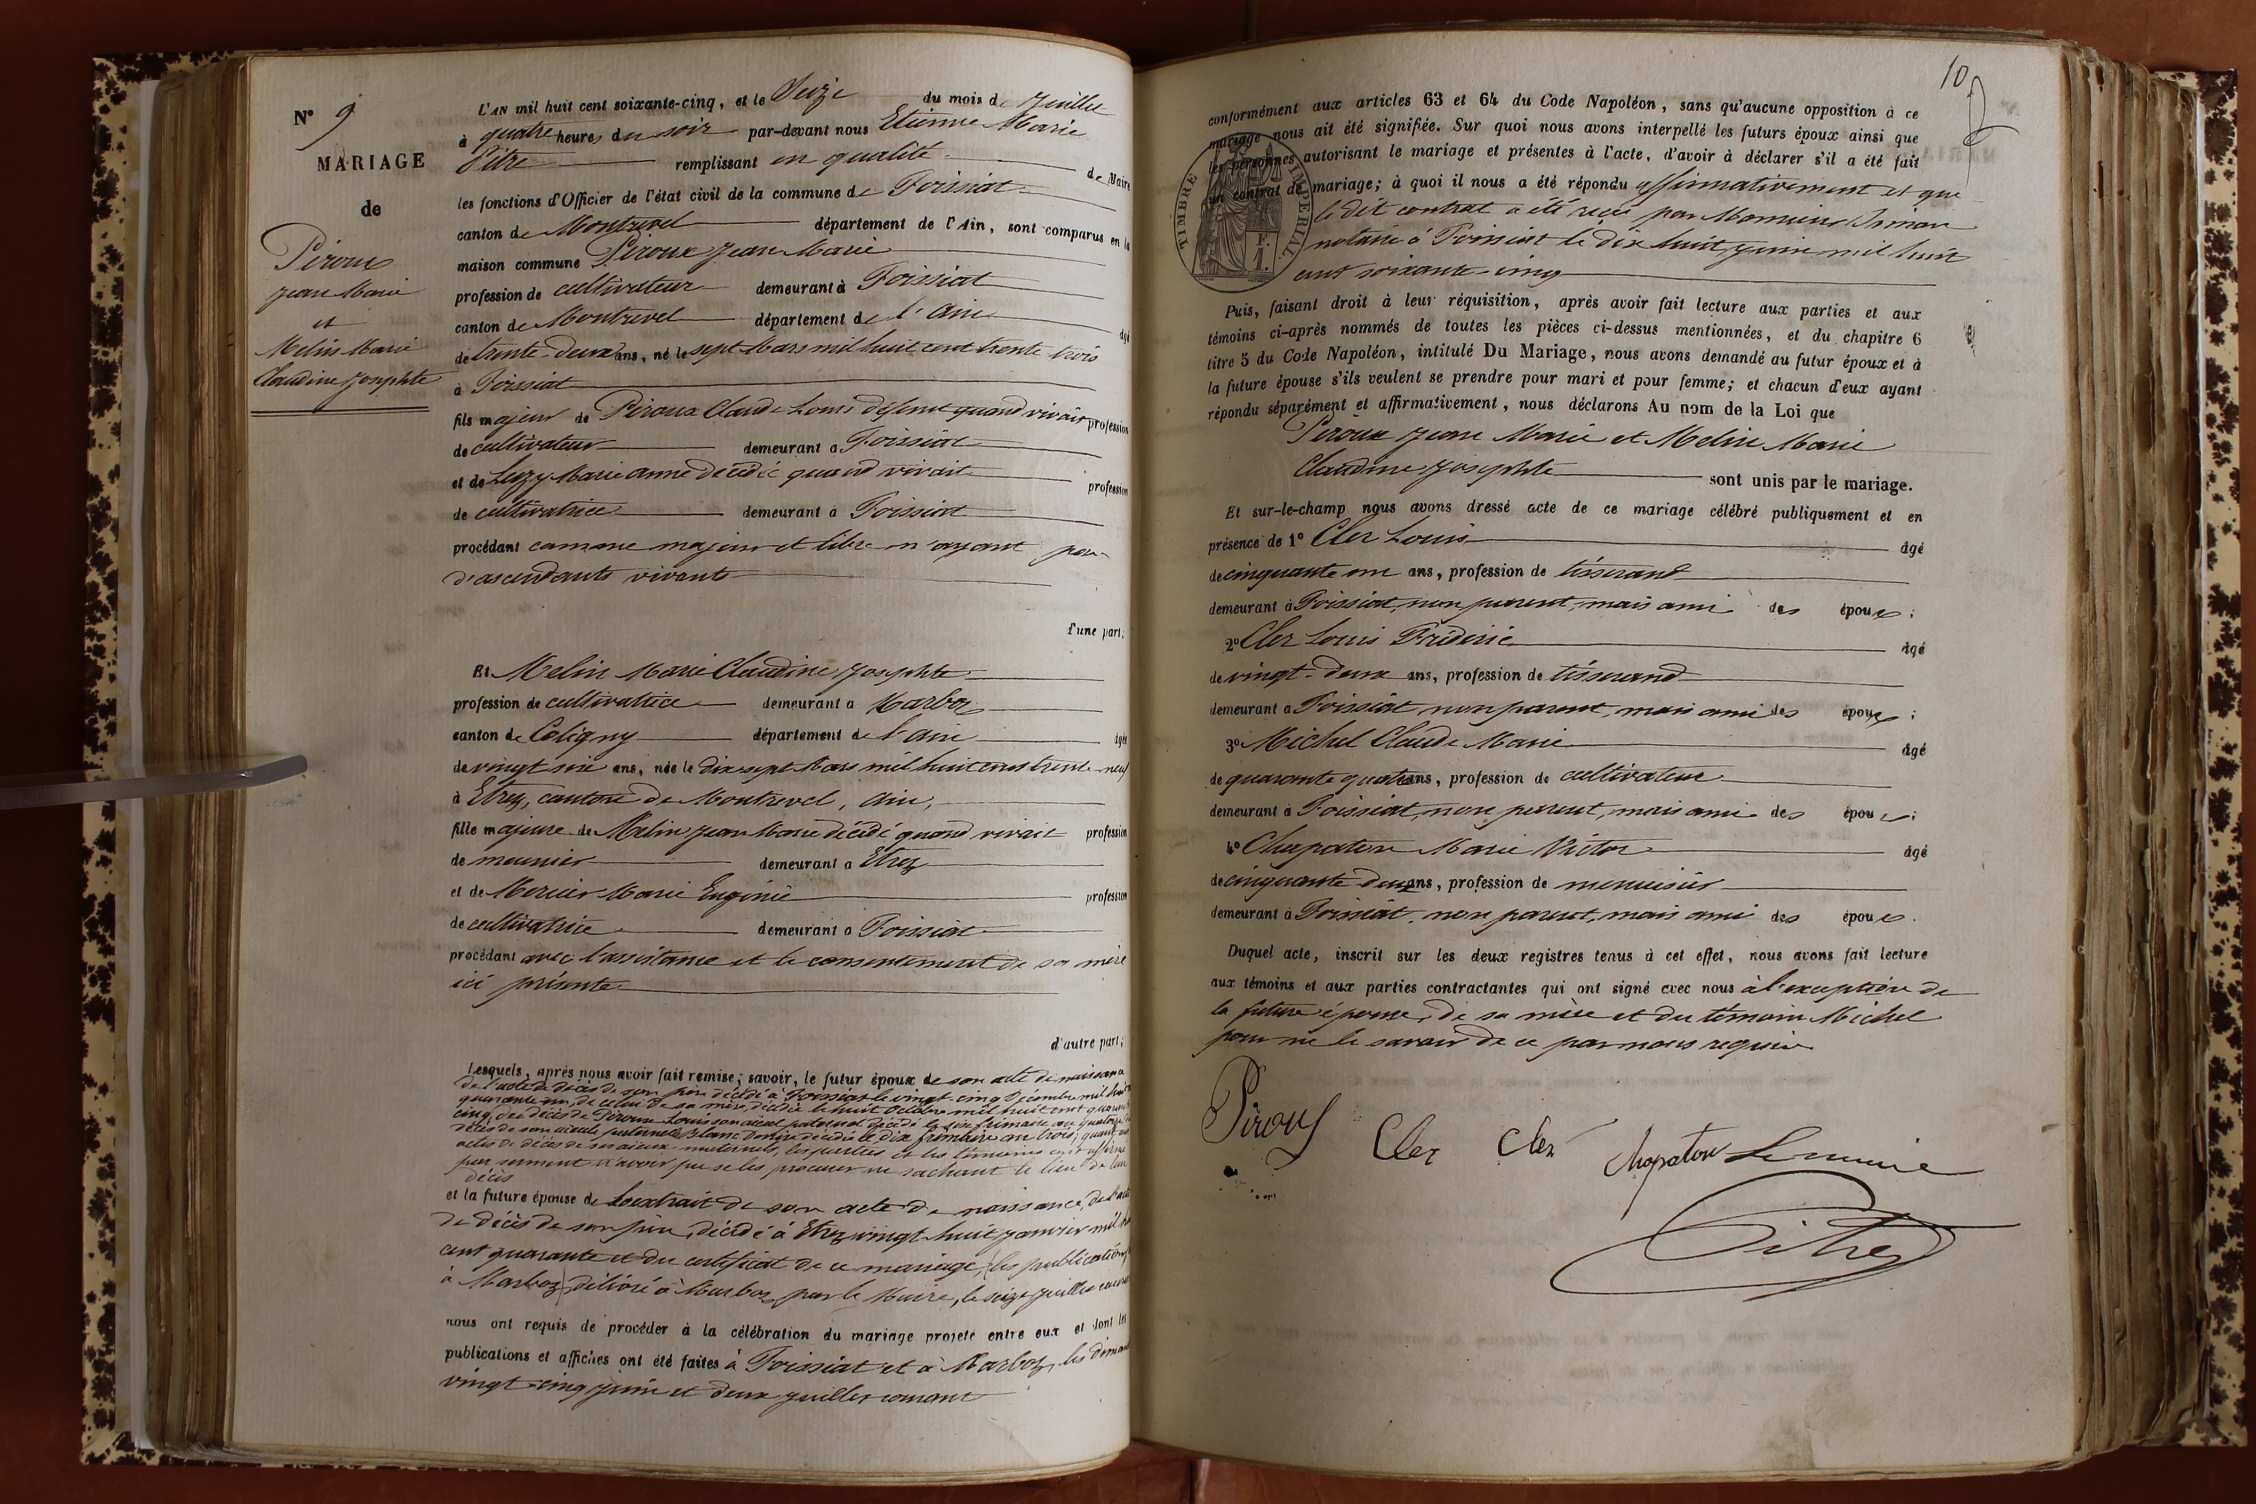 N° 9
MARIAGE
de
Piroux
Jean Marie
et
Melin Marie
Claudine Josephte
L'AN mil huit cent soixante-cinq, et le Seize du mois de Juillet
à quatre heures du soir par-devant nous Etienne Marie
Pitre remplissant en qualité de Maire
les fonctions d'Officier de l'état civil de la commune de Foissiat
canton de Montrevel département de l'Ain, sont comparus en la
maison commune Piroux Jean Marie
profession de cultivateur demeurant à Foissiat
canton de Montrevel département de l'Ain âgé
de trente-deux ans, né le sept Mars mil huit cent trente trois
à Foissiat
fils majeur de Piroux Claude Louis défunt quand vivait profession
de cultivateur demeurant à Foissiat
et de Marie Anne décédée quand vivait profession
de cultivatrice demeurant à Foissiat
procédant comme majeur et libre n'ayant pas
d'ascendants vivants
d'une part;
Et Melin Marie Claudine Josephte
profession de cultivatrice demeurant à Marboz
canton de Coligny département de l'ain âgée
de vingt six ans, née le dix sept Mars mil huit cent trente-neuf
à Etrez, canton de Montrevel, Ain,
fille majeure de Melin Jean Marie décédé quand vivait profession
de meunier demeurant à Etrez
et de Mercier Marie Eugénie profession
de cultivatrice demeurant à Foissiat
procédant avec l'assistance et le consentement de sa mère
ici présente
d'autre part;
Lesquels, après nous avoir fait remise; savoir, le futur époux de son acte de naissance
de l'acte de décès de son père décédé à Foissiat le vingt-cinq Décembre mil huit
quarante un, de celui de sa mère, décédée le huit Octobre mil huit cent quarante
cinq, du décès de Piroux Louis son aïeul paternel décédé le six frimaire an quatorze
décès de son aïeule paternelle Blanc Denise décédée le dix frimaire an trois; quant aux
actes de décès de ses aïeux maternels, les parties et les témoins ont affirmé
par serment n'avoir pu se les procurer ne sachant le lieu de leur
décès
et la future épouse de l'extrait de son acte de naissance, de l'acte
de décès de son père, décédé à Etrez vingt-huit Janvier mil huit
cent quarante et du certificat de ce mariage, les publications
à Marboz, délivré à Marboz par le Maire, le seize juillet courant
nous ont requis de procéder à la célébration du mariage projeté entre eux et dont les
publications et affiches ont été faites à Foissiat et à Marboz, les dimanches
vingt-cinq juin et deux juillet courant
10
conformément aux articles 63 et 64 du Code Napoléon, sans qu'aucune opposition à ce
mariage nous ait été signifiée. Sur quoi nous avons interpellé les futurs époux ainsi que
les personnes autorisant le mariage et présentes à l'acte, d'avoir à déclarer s'il a été fait
un contrat de mariage; à quoi il nous a été répondu affirmativement et que
le dit contrat a été reçu par Monsieur
notaire à Foissiat le dix huit juin mil huit
cent soixante-cinq
TIMBRE IMPÉRIAL
1 F.
Puis, faisant droit à leur réquisition, après avoir fait lecture aux parties et aux
témoins ci-après nommés de toutes les pièces ci-dessus mentionnées, et du chapitre 6
titre 5 du Code Napoléon, intitulé Du Mariage, nous avons demandé au futur époux et à
la future épouse s'ils veulent se prendre pour mari et pour femme; et chacun d'eux ayant
répondu séparément et affirmativement, nous déclarons Au nom de la Loi que
Piroux Jean Marie et Melin Marie
Claudine Josephte sont unis par le mariage.
Et sur-le-champ nous avons dressé acte de ce mariage célébré publiquement et en
présence de 1° Cler Louis âgé
de cinquante un ans, profession de tisserand
demeurant à Foissiat, non parent, mais ami des époux;
2° Cler Louis Fréderic âgé
de vingt-deux ans, profession de tisserand
demeurant à Foissiat, non parent, mais ami des époux;
3° Michel Claude Marie âgé
de quarante quatre ans, profession de cultivateur
demeurant à Foissiat, non parent, mais ami des époux;
4° Chapaton Marie Victor âgé
de cinquante deux ans, profession de menuisier
demeurant à Foissiat, non parent, mais ami des époux.
Duquel acte, inscrit sur les deux registres tenus à cet effet, nous avons fait lecture
aux témoins et aux parties contractantes qui ont signé avec nous à l'exception de
la future épouse, de sa mère et du témoin Michel
pour ne le savoir de ce par nous requis
Piroux Cler Cler Chapaton Le maire
Pitre